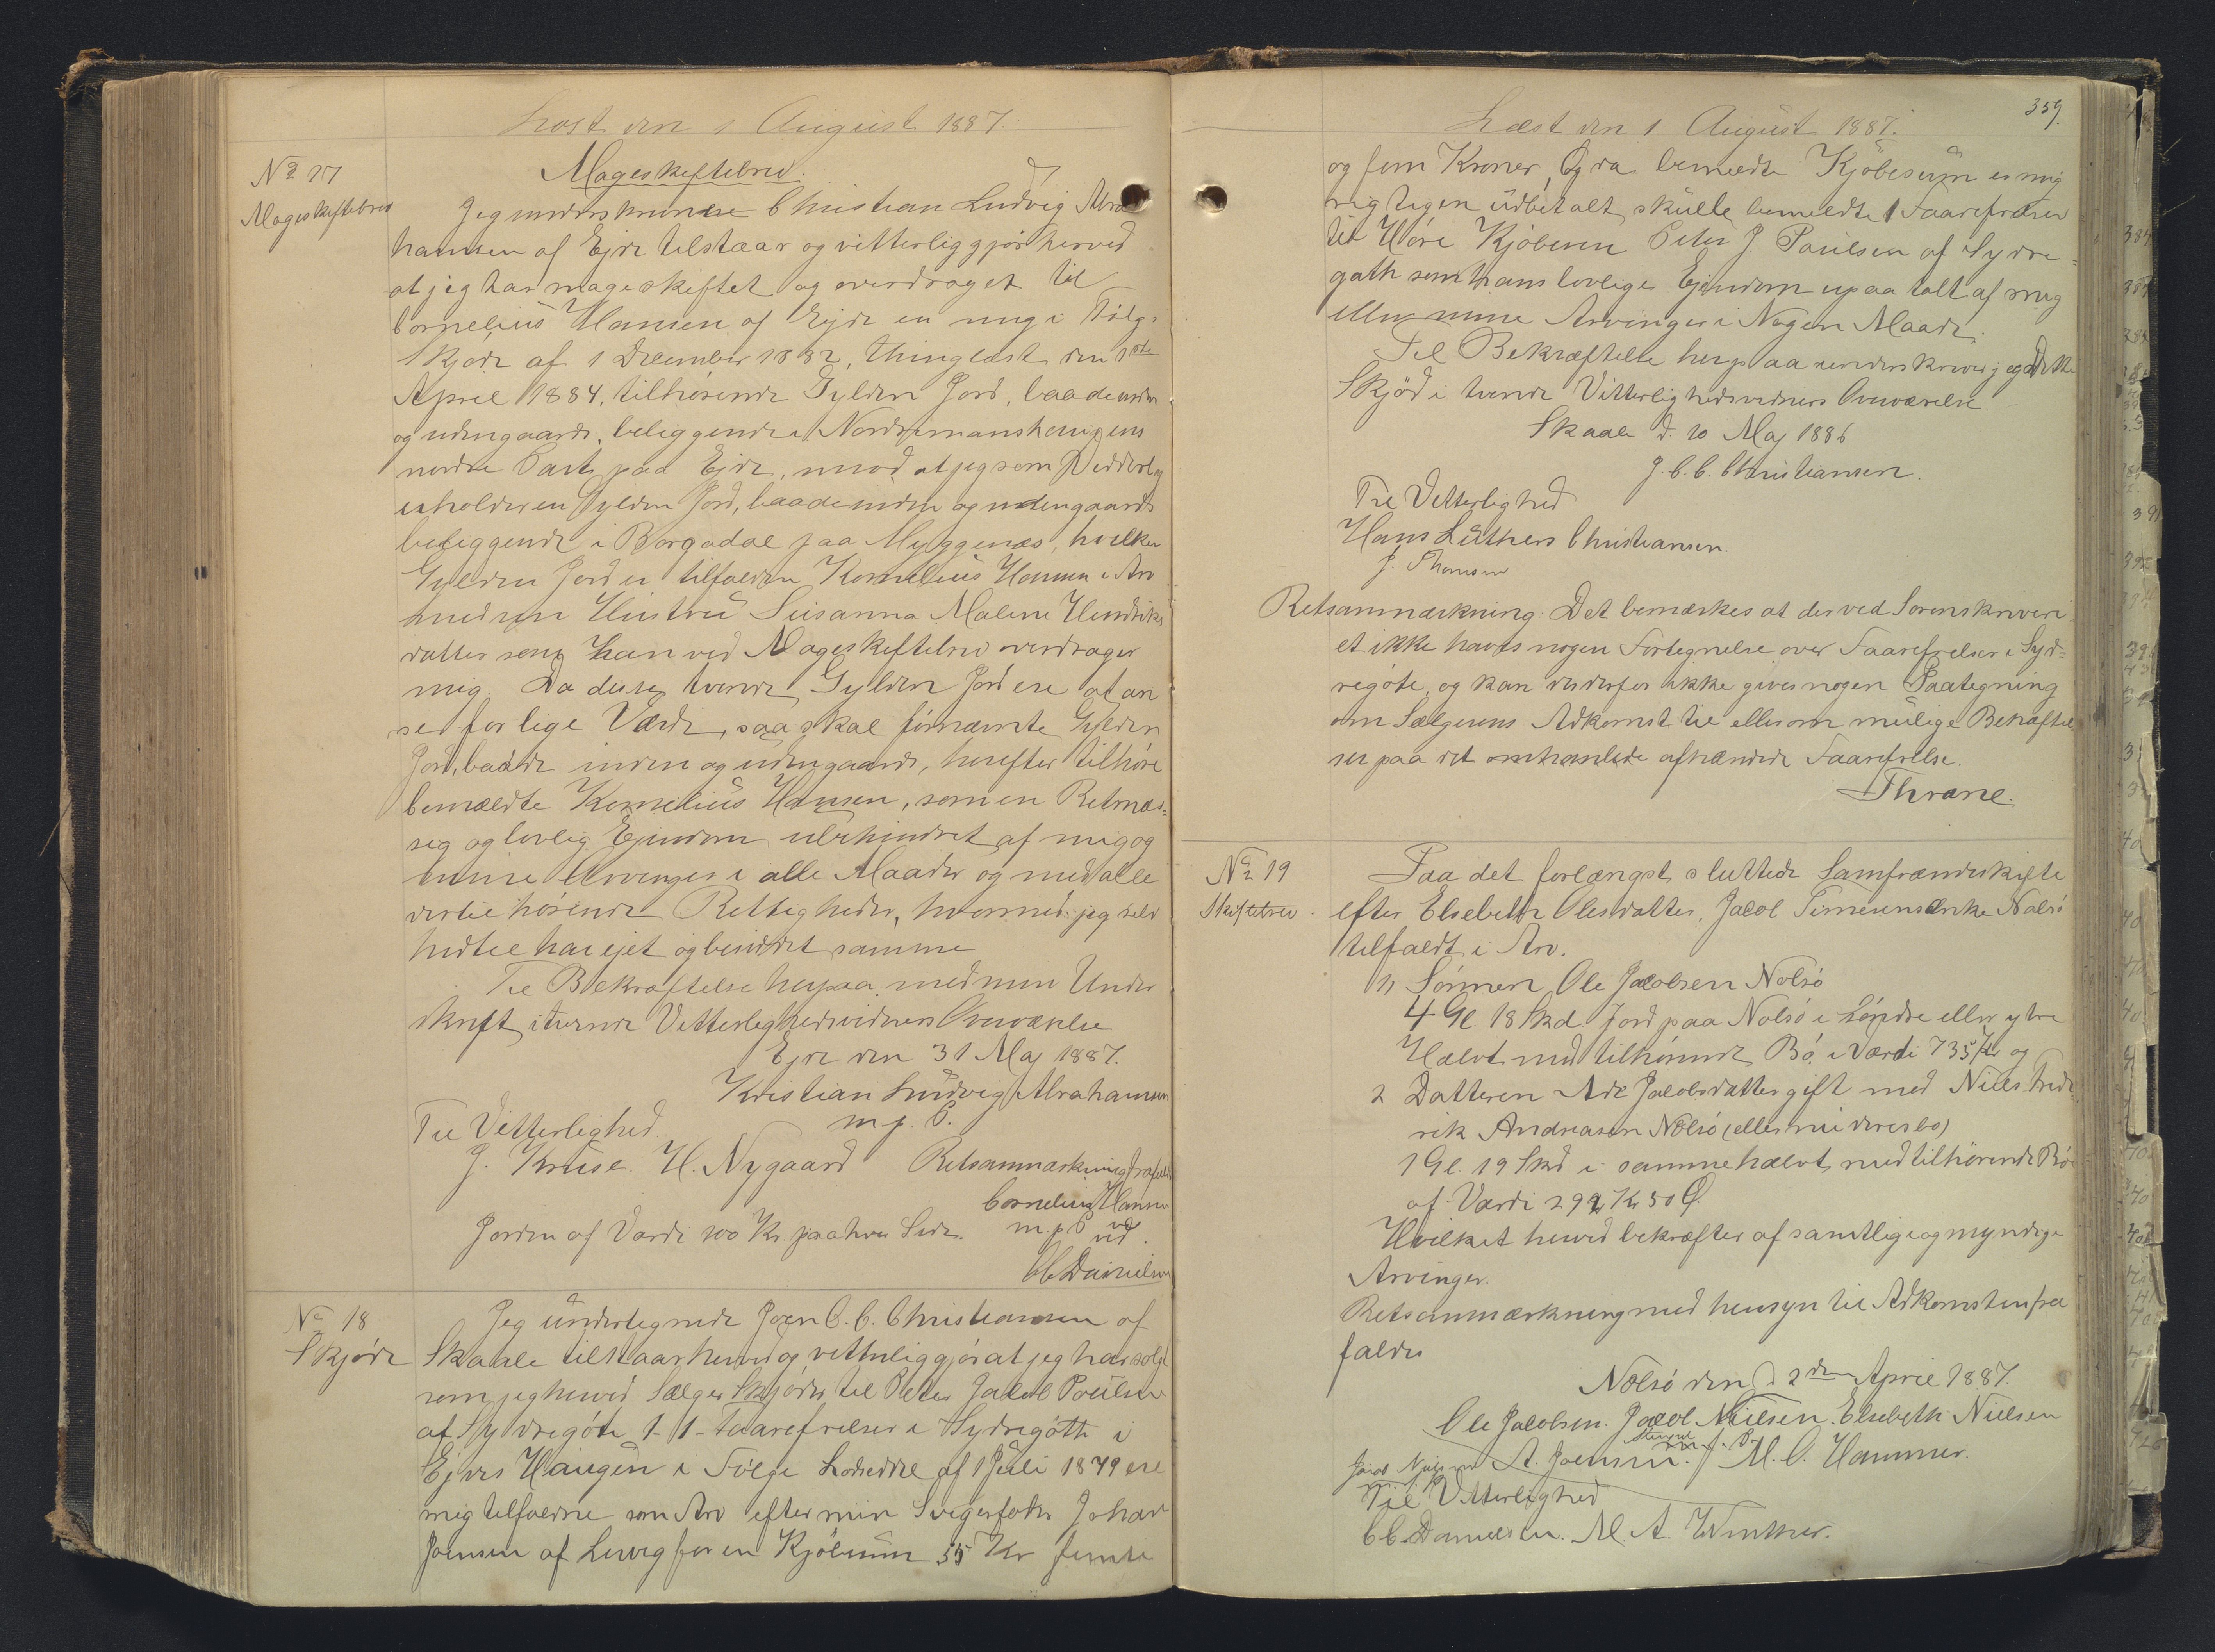 Læst den 1 August 1887.
No 17
Mageskiftebrev
Mageskiftebrev.
Jeg underskrevne Christian Ludvig Abra
hamsen af Ejde tilstaar og vitterliggjör herved
at jeg har mageskiftet og overdraget til
Cornelius Hansen af Ejde en mig i Fölge
Skjöde af 1 December 1882, thinglæst den 1ste
April 1884, tilhørende Gylden Jord, baade inden
og udengaards, beliggende i Nordre
nordre Part paa Ejde, imod at jeg som Vederlag
erholder en Gylden Jord, baade inden og udengaards
beliggende i Borgadal paa Myggenæs, hvilken
Gylden Jord er tilfalden Kornelius Hansen i Arv
med sin Hustru Susanna Malene Hendriks
datter som han ved Mageskiftebrev overdrager
mig. Da disse tvende Gylden Jord ere at an
se for lige Værdi, saa skal förnævnte Gylden
Jord, baade inden og udengaards, herefter tilhöre
bemældte Kornelius Hansen, som en Retmæs=
sig og lovlig Ejendom ubehindret af mig og
mine Arvinger i alle Maader og med alle
dertil hörende Rettigheder, hvormed jeg selv
hidtil har ejet og besiddet samme
Til Bekræftelse herpaa med min Under
skrift i tvende Vitterlighedsvidners Overværelse
Ejde den 31 Maj 1887.
Kristian Ludvig Abrahamsen
m. p. P.
Til Vitterlighed
J. Kruse. H. Nygaard Retsanmærkning frafaldes
Cornelius Hansen
Jorden af Værdi 100 Kr. paa hver Side. m. p. P
ved
C Danielsen
No 18
Skjöde
Jeg undertegnede Joen C. C. Christiansen af
Skaale tilstaar herved og vitterliggjör at jeg har solgt
som jeg herved Sælger Skjöder til Peter Jakob Poulsen
af Sydregöte 1 - 1 - Faarefrelser i Sydregöth i
Ejders Haugen i Fölge Lodseddel af 1 Juli 1879 ere
mig tilfaldne som Arv efter min Svigerfader Johan
Joensen af Lervig for en Kjöbesum 55 Kr femti
359
Læst den 1 August 1887.
og fem Kroner, Og da bemeldte Kjöbesum er mig
rigtigen udbetalt, skulle bemeldte 1 Faarefrelser
til Höre Kjöberen Peter J. Poulsen af Sydre=
gøth som hans lovlige Ejendom upaatalt af mig
eller mine Arvinger i Nogen Maade.
Til Bekræftelse herpaa underskriver jeg dette
Skjöd i tvende Vitterlighedsvidners Overværelse
Skaale d. 10 Maj 1886
J. C. C. Christiansen.
Til Vitterlighed
Hans Luthers Christiansen.
J. Thomsen
Retsanmærkning. Det bemærkes at der ved Sorenskriveri
et ikke haves nogen Fortegnelse over Faarefrelser i Syd=
regöte, og kan der derfor ikke gives nogen Paategning
om Sælgerens Adkomst til eller om mulige Behæftel
ser paa det omhandlede afhændede Faarefrelse.
Thrane.
No 19
Skiftebrev.
Paa det forlængst sluttede Samfrændeskifte
efter Elsebeth Olesdatter, Jacob Simeuns Enke Nolsö
tilfaldt i Arv.
1, Sönnen Ole Jacobsen Nolsö
4 Gl. 18 Skd. Jord paa Nolsö i söndre eller ytre
Halvt med tilhörende Bö. i Værdi 735 Kr og
2 Datteren Ade Jacobsdatter gift med Niels Fred
rik Andreasen Nolsö (eller nu deres bo)
1 Gl. 19 Skd i samme halvt med tilhörende Bö
af Værdi 292 Kr 50 Ø.
Hvilket herved bekræftes af samtlige og myndige
Arvinger.
Retsanmærkning med hensyn til Adkomsten fra
faldes
Nolsö den 2den April 1887.
Ole Jacobsen. Jacob Nielsen. Elsebeth Nielsen
A. Joensen. m. f. P. M. C. Hammer.
Til Vitterlighed
C C. Danielsen. M. A. Winther.